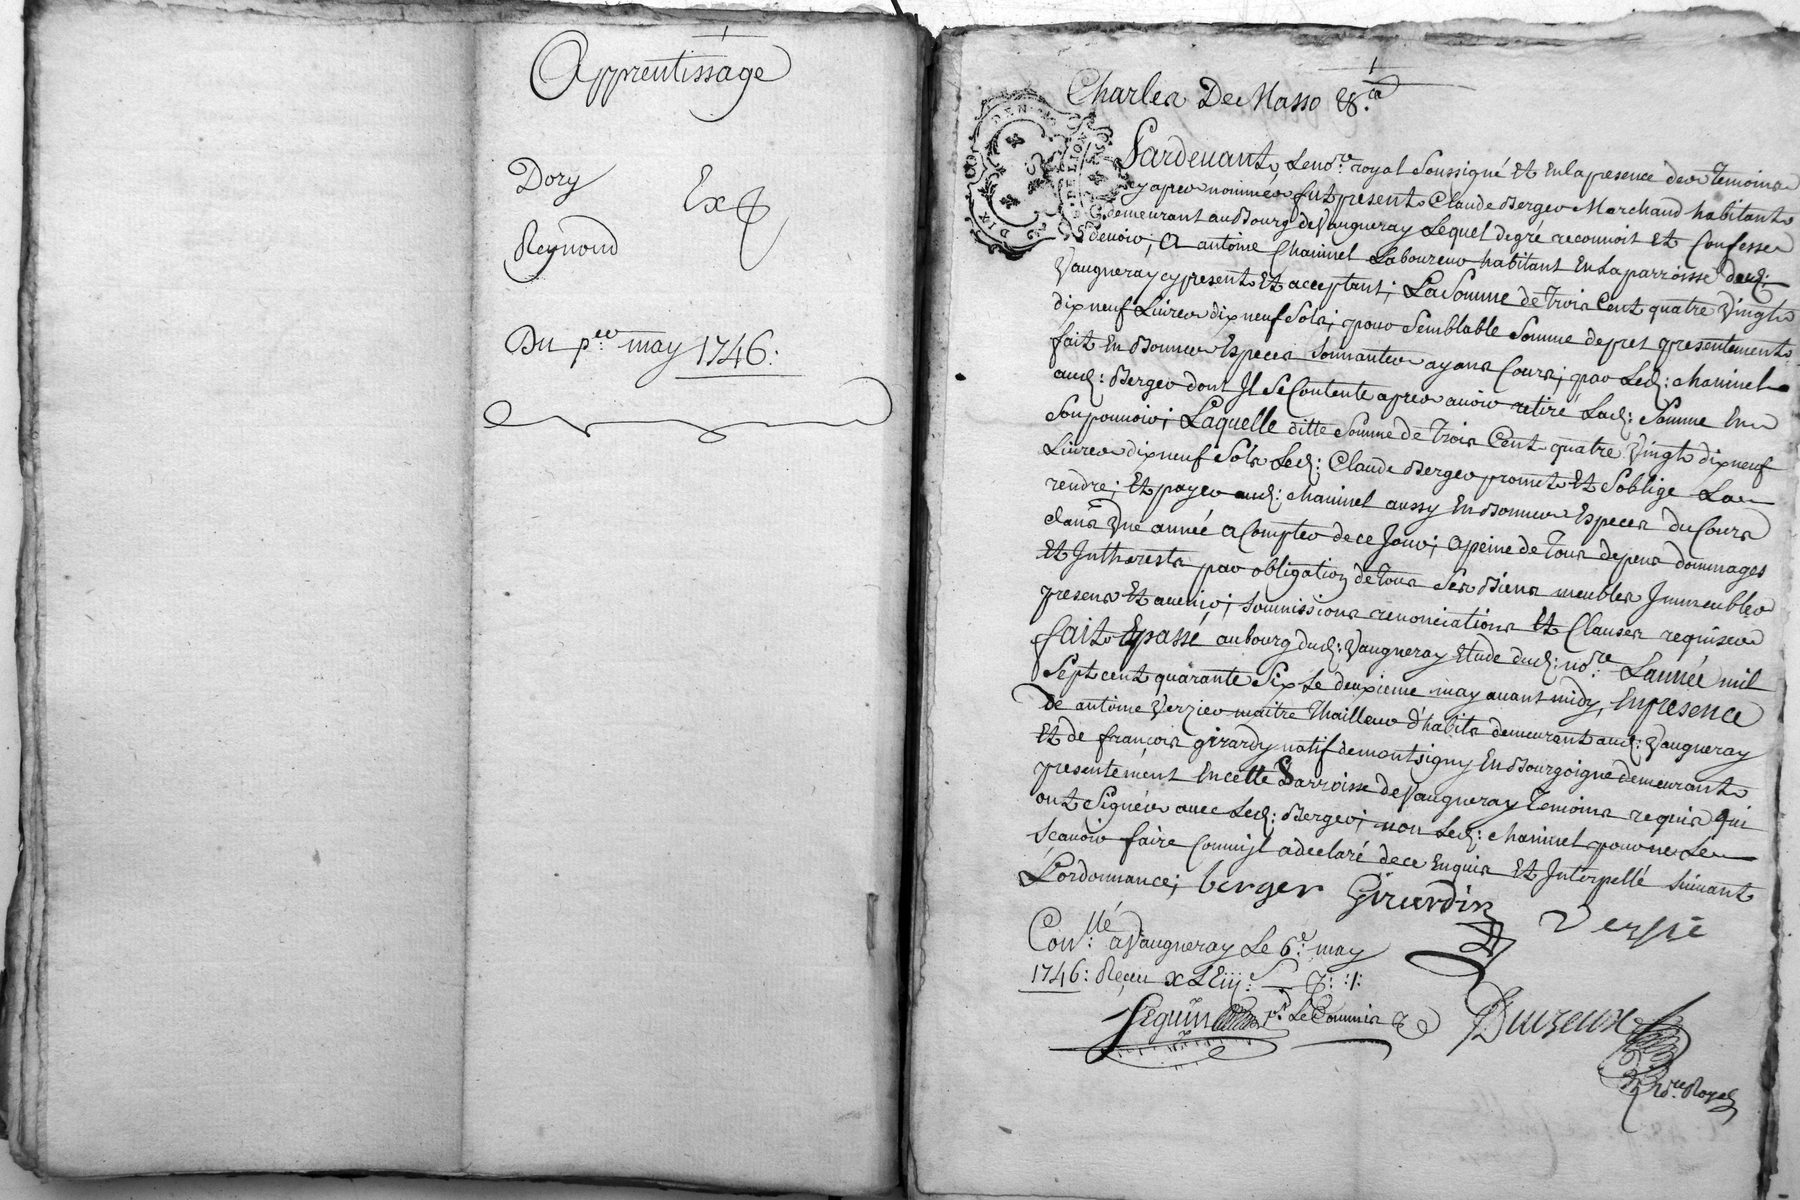 Apprentissage
Dory Exp
Reynond
Du p.er may 1746.
Charles De Masso &.ca
Pardevant Le no.re royal Soussigné Et En la presence des Temoins
cy apres nommes fut present Claude Berger Marchand habitant
demeurant au Bourg de Vaugneray Lequel de gré reconnoit Et Confesse
devoir; a antoine Chaninel Laboureur habitant En La parroisse dud:
Vaugneray cy present Et acceptant; La Somme de Trois Cent quatre Vingt
dix neuf Livres dix neuf Sols; pour Semblable Somme de pret presentement
fait En Bonnes Especes Sonnantes ayans Cours; par Led: Chaninel
aud: Berger dont Il Se Contente apres avoir retiré Lad: Somme En
Son pouvoir; Laquelle ditte Somme de Trois Cent quatre Vingt dix neuf
Livres dix neuf Sols Led: Claude Berger promet Et S'oblige La
rendre; Et payer aud: Chaninel aussy En Bonnes Especes du Cours
dans Une année a Compter de ce Jour; a peine de Tous depens dommages
Et Intherests par obligation de Tous Ses Biens meubles Immeubles
presens Et avenir; Soumissions renonciations Et Clauses requises
fait Et passé au bourg dud: Vaugneray Etude dud: no.re L'année mil
Sept cent quarante Six Le deuxieme may avant midy, En presence
De antoine Verzier maitre Thailleur d'habits demeurant aud: Vaugneray
Et de françois girardy natif de montsigny En Bourgoigne demeurant
presentement En cette Parroisse de Vaugneray Temoins requis qui
ont Signées avec Led: Berger; non Led: Chaninel pour ne Le
Scavoir faire Comm'il a declaré de ce Enquis Et Interpellé Suivant
L'ordonnance; berger Girerdin Versié
Con.llé a Vaugneray Le 6.e may
1746: Reçeu x LEiij: S
Seguin p.r Le Commis
no.re Royal